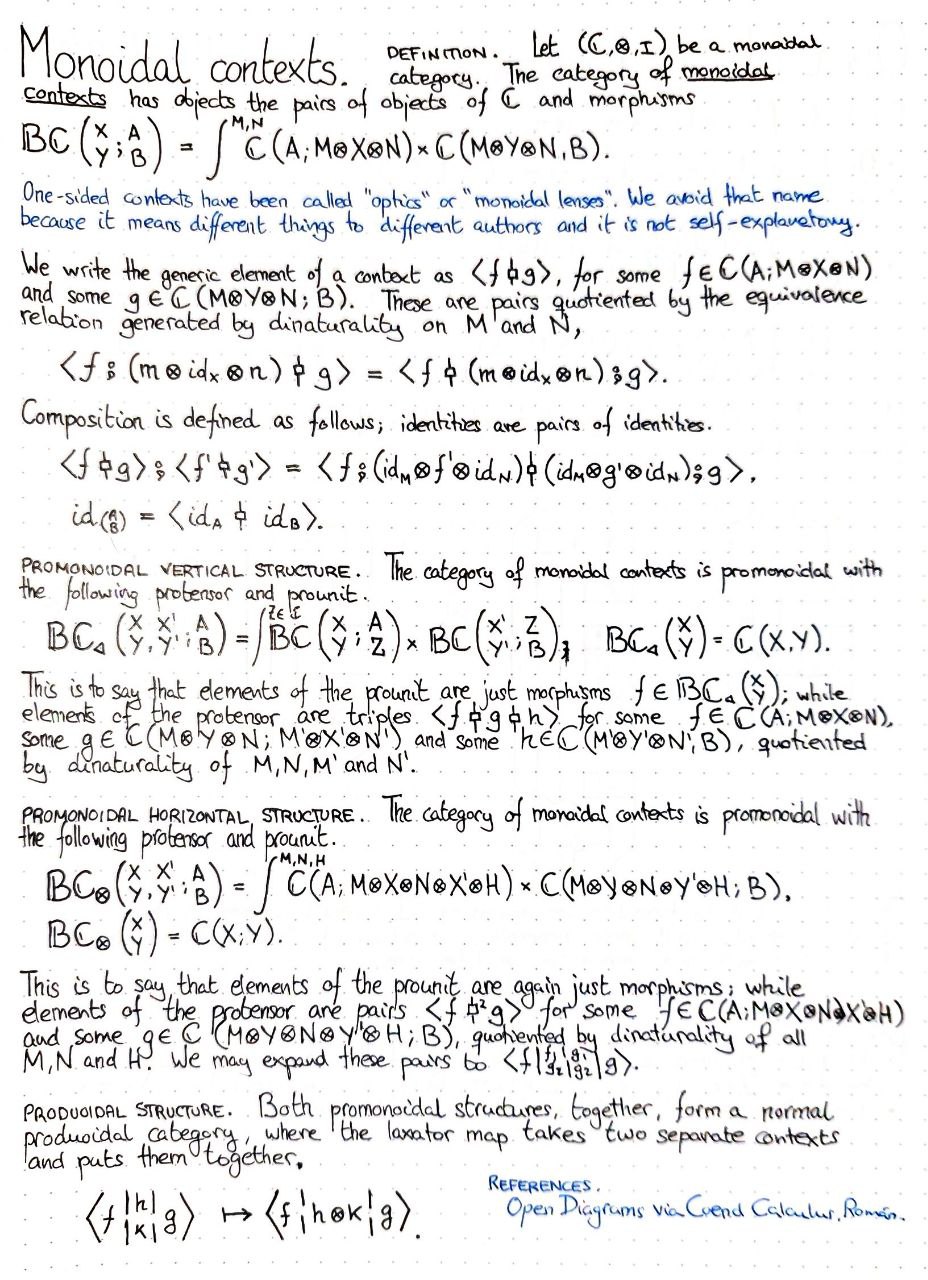 Monoidal contexts. DEFINITION. Let (ℂ,⊗,I) be a monoidal
category. The category of monoidal
contexts has objects the pairs of objects of ℂ and morphisms
𝔹ℂ (X Y ; A B) = ∫^{M,N} ℂ(A; M⊗X⊗N) × ℂ(M⊗Y⊗N, B).
One-sided contexts have been called "optics" or "monoidal lenses". We avoid that name
because it means different things to different authors and it is not self-explanatory.
We write the generic element of a context as ⟨f ⌽ g⟩, for some f ∈ ℂ(A; M⊗X⊗N)
and some g ∈ ℂ(M⊗Y⊗N; B). These are pairs quotiented by the equivalence
relation generated by dinaturality on M and N,
⟨f ⨾ (m ⊗ id_X ⊗ n) ⌽ g⟩ = ⟨f ⌽ (m ⊗ id_X ⊗ n) ⨾ g⟩.
Composition is defined as follows; identities are pairs of identities.
⟨f ⌽ g⟩ ⨾ ⟨f' ⌽ g'⟩ = ⟨f ⨾ (id_M ⊗ f' ⊗ id_N) ⌽ (id_M ⊗ g' ⊗ id_N) ⨾ g⟩,
id_(A B) = ⟨id_A ⌽ id_B⟩.
PROMONOIDAL VERTICAL STRUCTURE. The category of monoidal contexts is promonoidal with
the following protensor and prounit.
𝔹ℂ_◁ (X Y, X' Y' ; A B) = ∫^{Z∈ℂ} 𝔹ℂ (X Y ; A Z) × 𝔹ℂ (X' Y' ; Z B); 𝔹ℂ_◁ (X Y) = ℂ(X,Y).
This is to say that elements of the prounit are just morphisms f ∈ 𝔹ℂ_◁ (X Y); while
elements of the protensor are triples ⟨f ⌽ g ⌽ h⟩ for some f ∈ ℂ(A; M⊗X⊗N),
some g ∈ ℂ(M⊗Y⊗N; M'⊗X'⊗N') and some h ∈ ℂ(M'⊗Y'⊗N', B), quotiented
by dinaturality of M, N, M' and N'.
PROMONOIDAL HORIZONTAL STRUCTURE. The category of monoidal contexts is promonoidal with
the following protensor and prounit.
𝔹ℂ_⊗ (X Y, X' Y' ; A B) = ∫^{M,N,H} ℂ(A; M⊗X⊗N⊗X'⊗H) × ℂ(M⊗Y⊗N⊗Y'⊗H; B),
𝔹ℂ_⊗ (X Y) = ℂ(X;Y).
This is to say that elements of the prounit are again just morphisms; while
elements of the protensor are pairs ⟨f ⌽² g⟩ for some f ∈ ℂ(A; M⊗X⊗N⊗X'⊗H)
and some g ∈ ℂ (M⊗Y⊗N⊗Y'⊗H; B), quotiented by dinaturality of all
M, N and H. We may expand these pairs to ⟨f| |g⟩.
PRODUOIDAL STRUCTURE. Both promonoidal structures, together, form a normal
produoidal category, where the laxator map takes two separate contexts
and puts them together.
⟨f |h| |k| g⟩ ↦ ⟨f ¦ h⊗k ¦ g⟩.
REFERENCES.
Open Diagrams via Coend Calculus, Román.